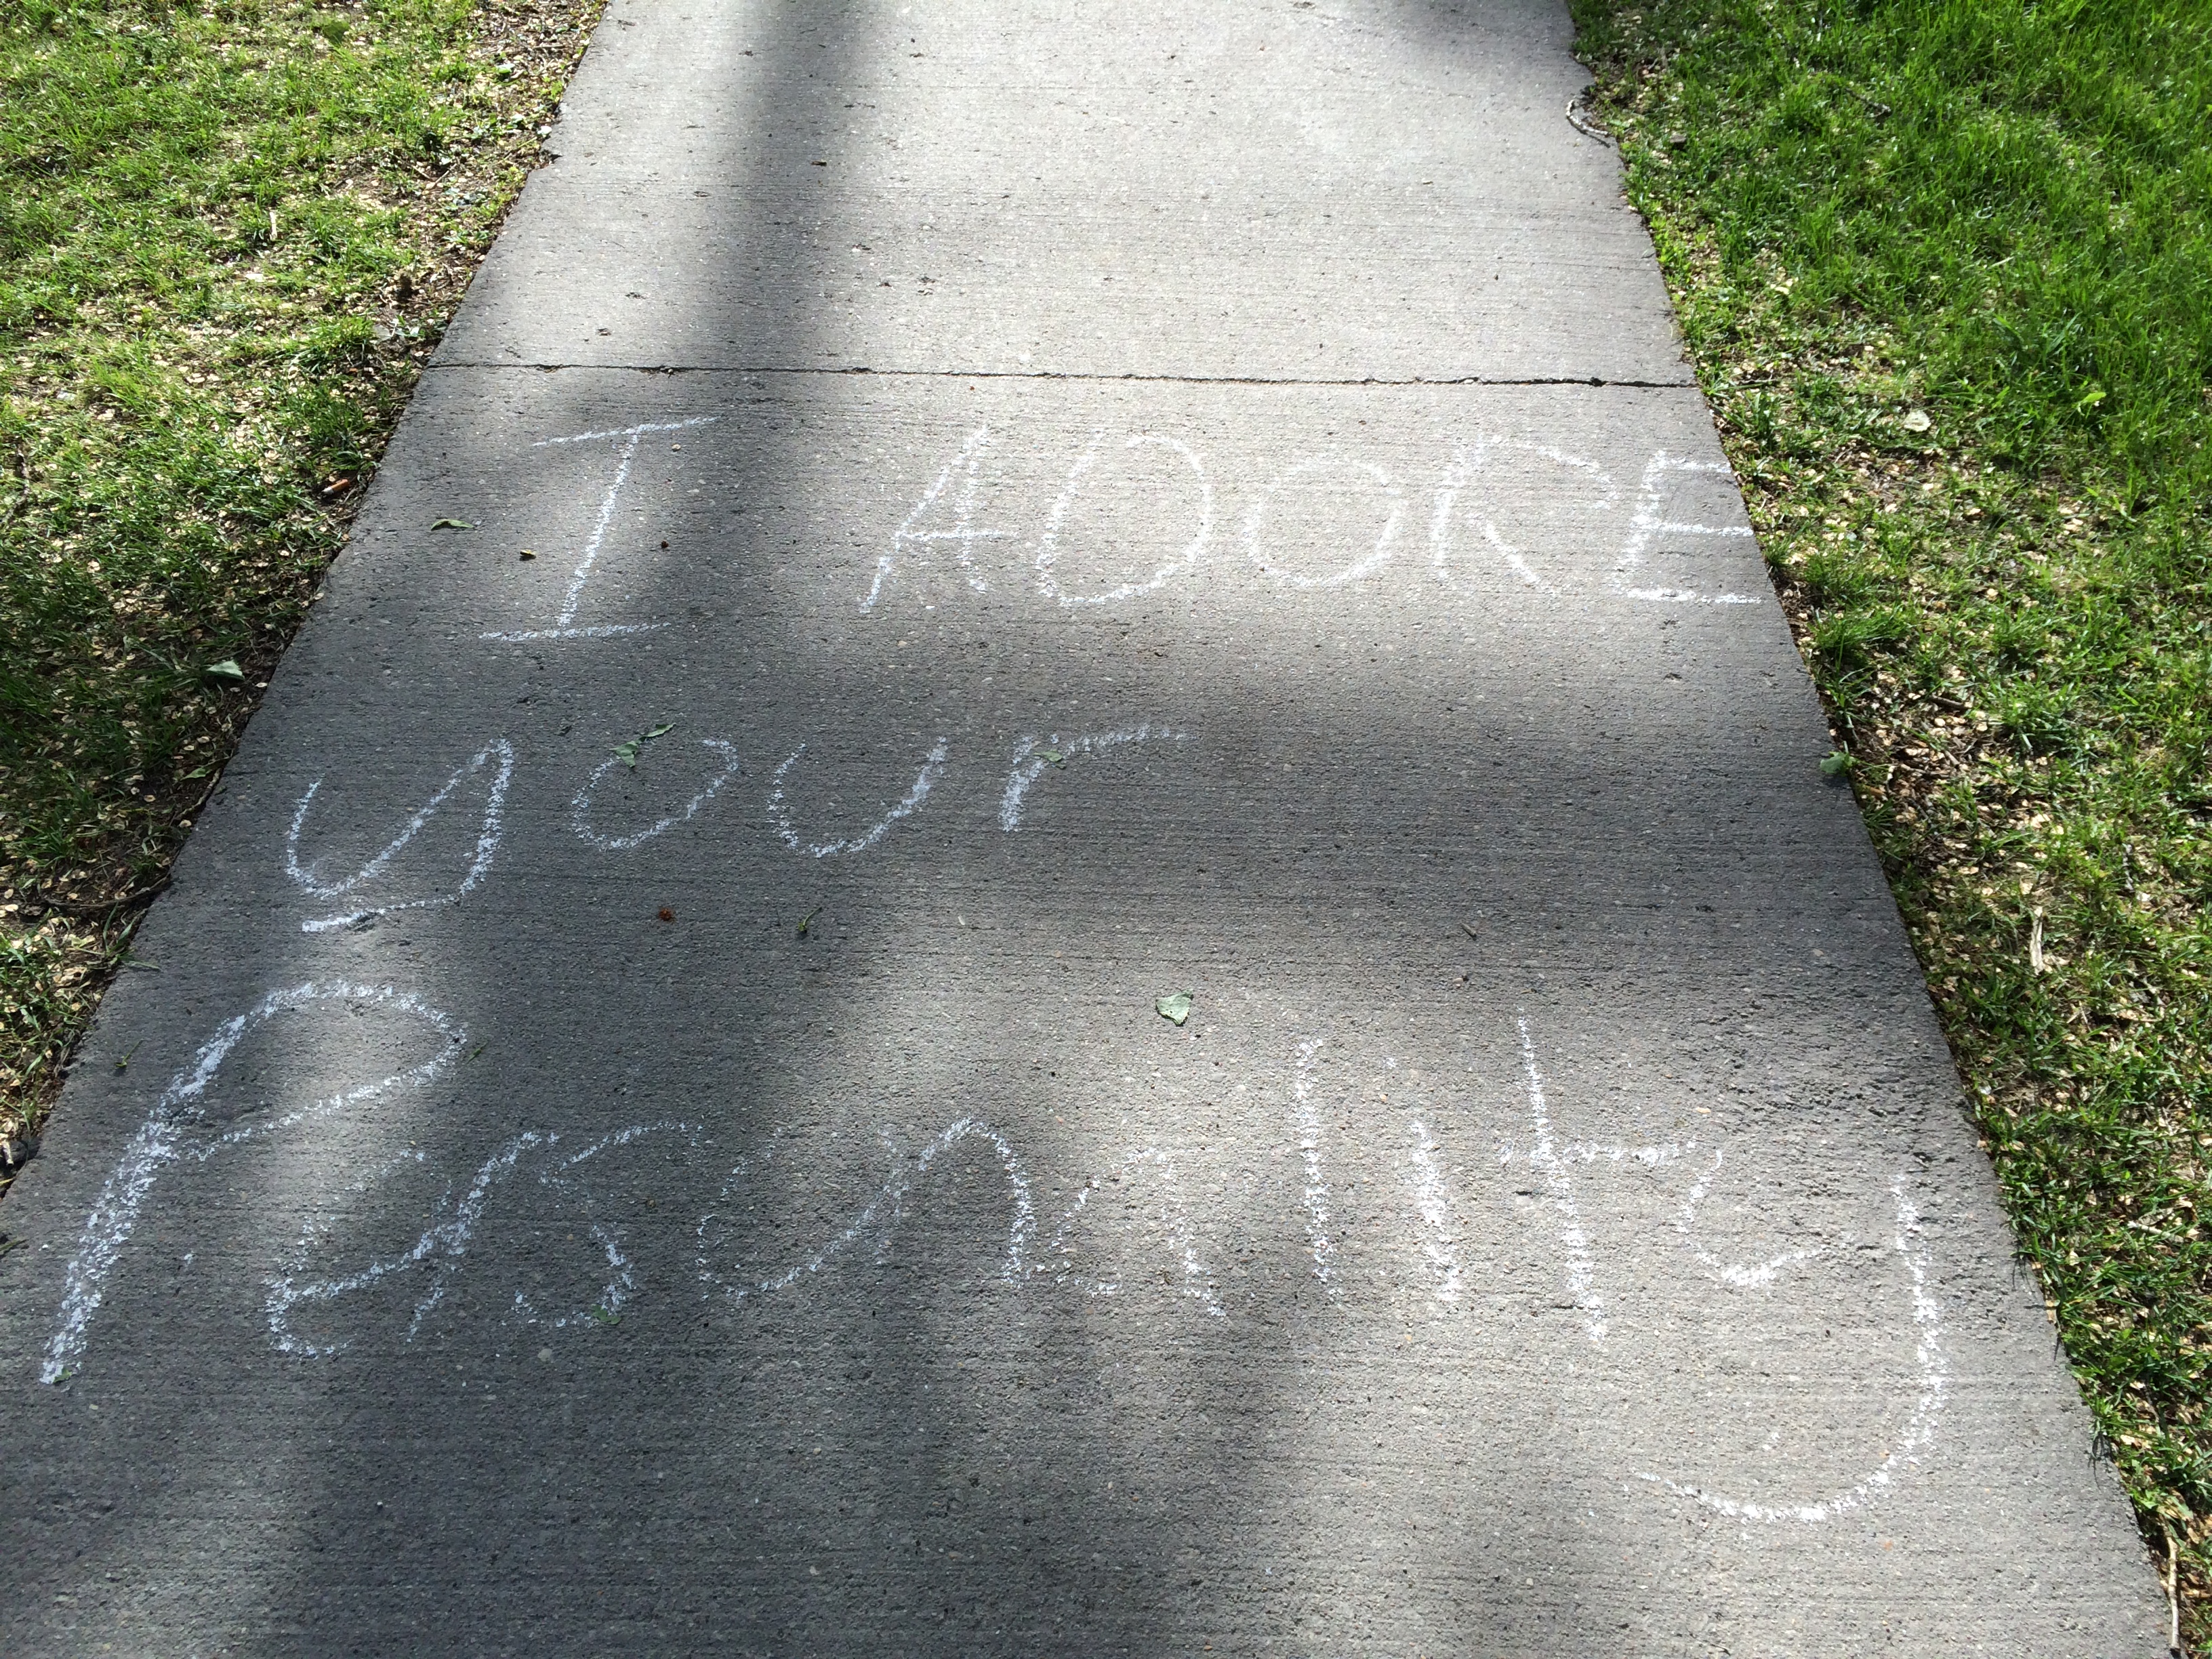 I ADORE
your
Personality